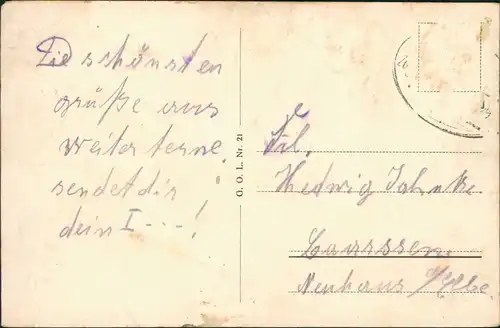 Die schönsten
grüße aus
weiter ferne
sendet dir
dein I---!
G. O. L. Nr. 21
Frl.
Hedwig Jahnke
Laarssen
Neuhaus a/Elbe.